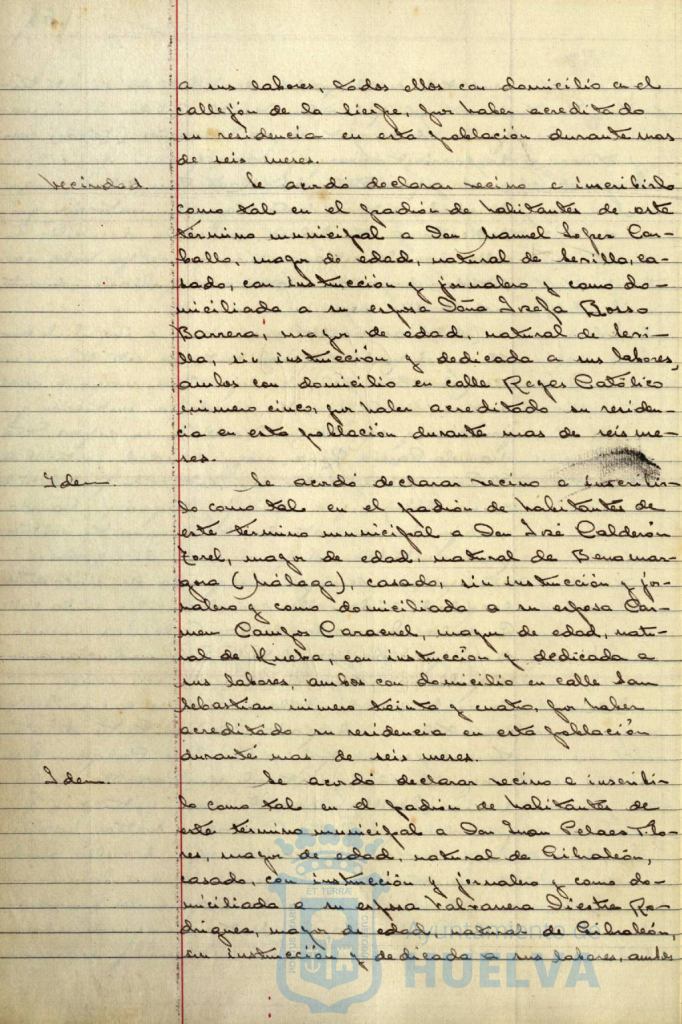 a sus labores, todos ellos con domicilio en el
callejón de la Sierpe, por haber acreditado
su residencia en esta población durante mas
de seis meses.
Vecindad. Se acordó declarar vecino e inscribirlo
como tal en el padrón de habitantes de este
término municipal a Don Manuel Lopez Car-
ballo, mayor de edad, natural de Sevilla, ca-
sado, con instrucción y jornalero y como do-
miciliada a su esposa Doña Josefa Bosso
Barrera, mayor de edad, natural de Sevi-
lla, sin instrucción y dedicada a sus labores,
ambos con domicilio en calle Reyes Católico
número cinco, por haber acreditado su residen-
cia en esta población durante mas de seis me-
ses.
Idem. Se acordó declarar vecino e inscribir-
lo como tal en el padrón de habitantes de
este término municipal a Don José Calderón
mayor de edad, natural de Benamar-
gosa (Málaga), casado, sin instrucción y jor-
nalero y como domiciliada a su esposa Car-
men Campos Caracuel, mayor de edad, natu-
ral de Huelva, con instrucción y dedicada a
sus labores, ambos con domicilio en calle San
Sebastian número treinta y cuatro, por haber
acreditado su residencia en esta población
durante mas de seis meses.
Idem. Se acordó declarar vecino e inscribir-
lo como tal en el padrón de habitantes de
este término municipal a Don Juan Pelaes Flo-
res, mayor de edad, natural de Gibraleón,
casado, con instrucción y jornalero y como do-
miciliada a su esposa Valvanera Siestre Ro-
drigues, mayor de edad, natural de Gibraleón,
sin instrucción y dedicada a sus labores, ambos
Ayuntamiento de
HUELVA